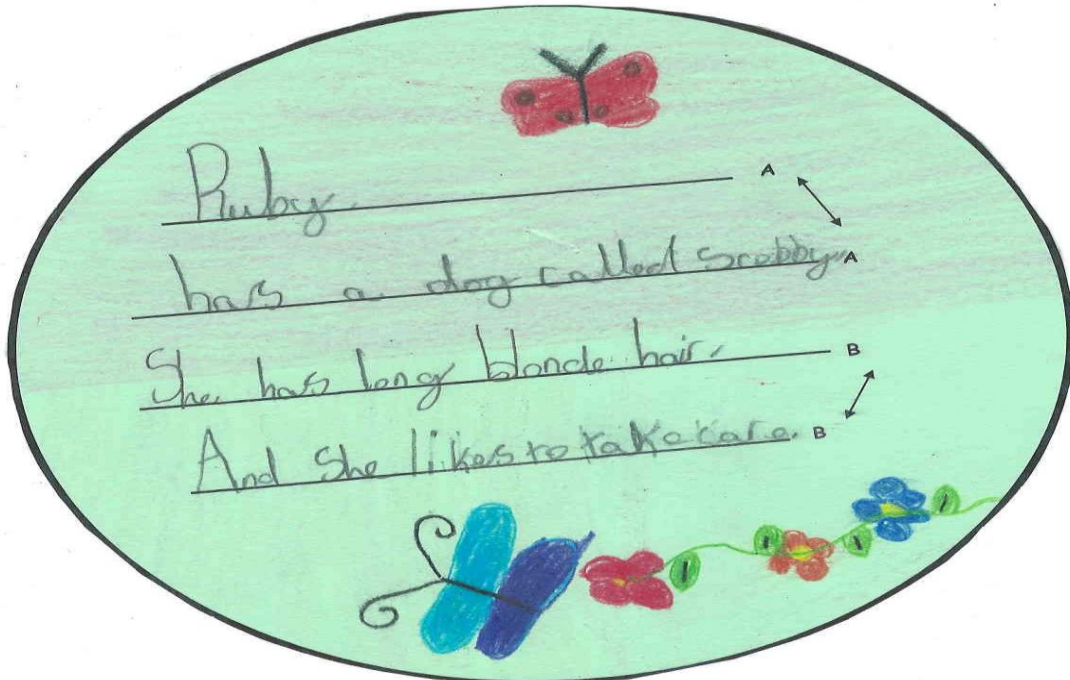 Ruby. A
has a dog called Scobby A
She has long blonde hair. B
And She likes to take care. B